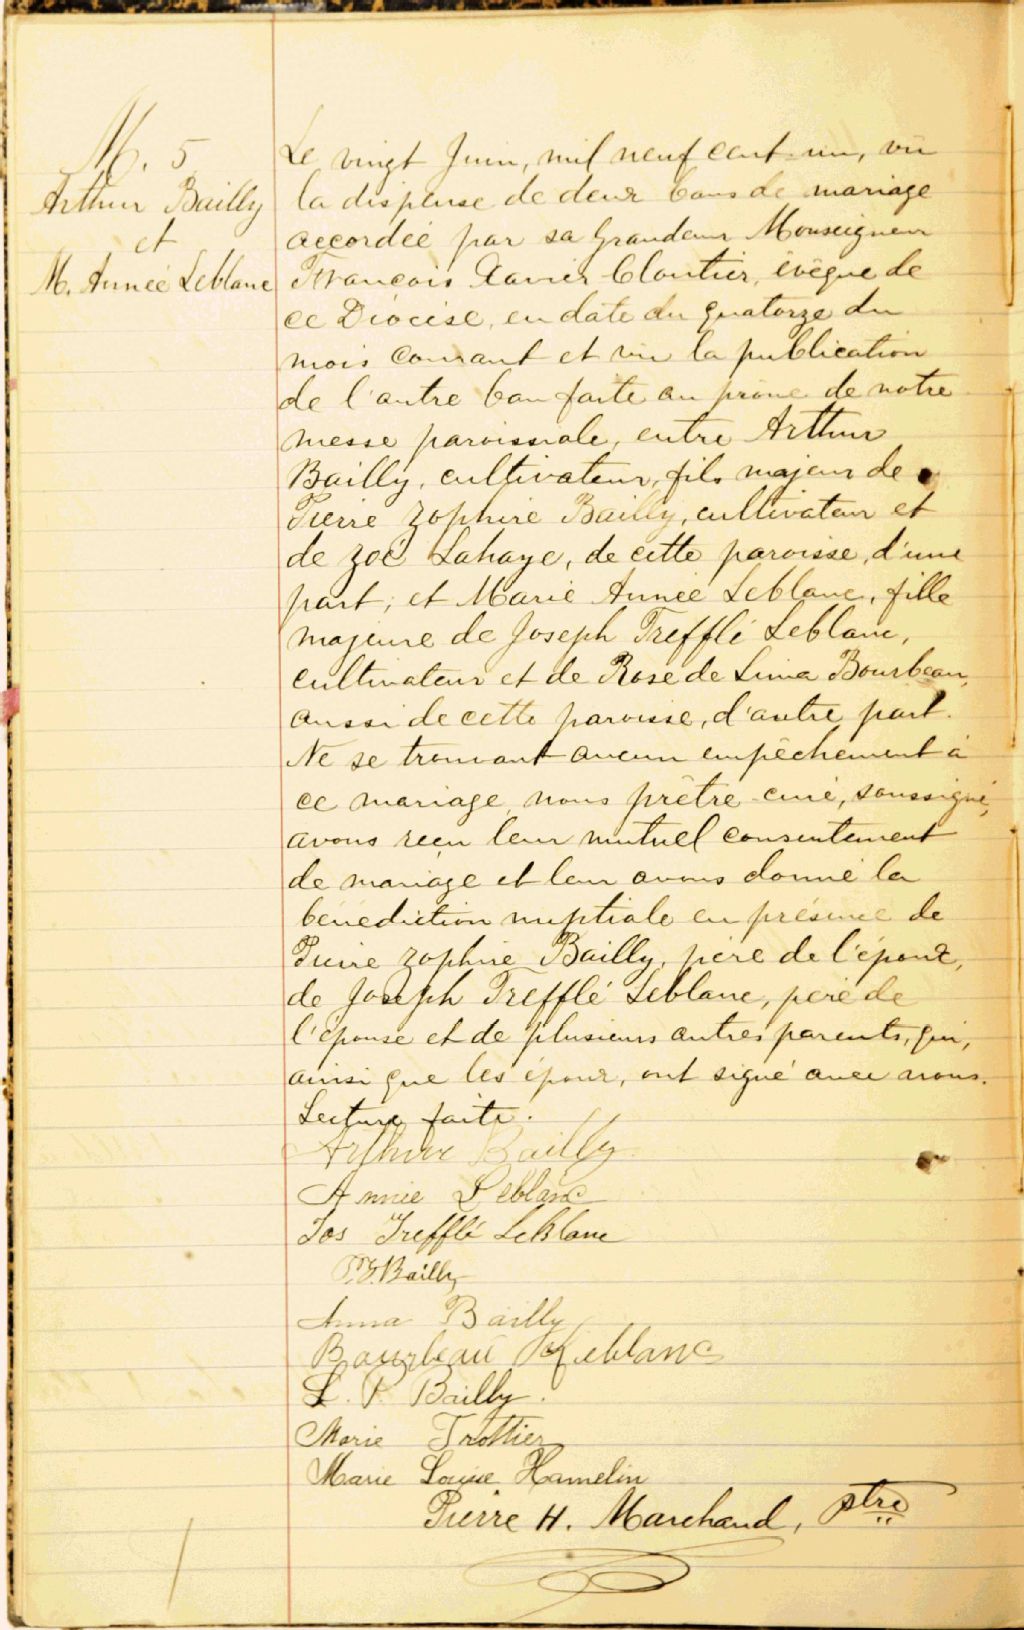 M. 5
Arthur Bailly
et
M. Année Leblanc
Le vingt Juin, mil neuf cent-un, vu
la dispense de deux bans de mariage
accordée par sa Grandeur Monseigneur
François Xavier Cloutier, évêque de
ce Diocèse, en date du quatorze du
mois courant et vu la publication
de l'autre ban faite au prône de notre
messe paroissiale, entre Arthur
Bailly, cultivateur, fils majeur de
Pierre Zophire Bailly, cultivateur et
de Zoé Lahaye, de cette paroisse, d'une
part; et Marie Année Leblanc, fille
majeure de Joseph Trefflé Leblanc,
cultivateur et de Rose de Lima Bourbeau,
aussi de cette paroisse, d'autre part.
Ne se trouvant aucun empêchement à
ce mariage, nous prêtre-curé, soussigné,
avons reçu leur mutuel consentement
de mariage et leur avons donné la
bénédiction nuptiale en présence de
Pierre Zophire Bailly, père de l'époux,
de Joseph Trefflé Leblanc, père de
l'épouse et de plusieurs autres parents, qui,
ainsi que les époux, ont signé avec nous.
Lecture faite.
Arthur Bailly
Annie Leblanc
Jos Trefflé LeBlanc
P. Z. Bailly
Anna Bailly
Bourbeau Leblanc
L. P. Bailly.
Marie Trottier
Marie Louise Hamelin
Pierre H. Marchand, ptre